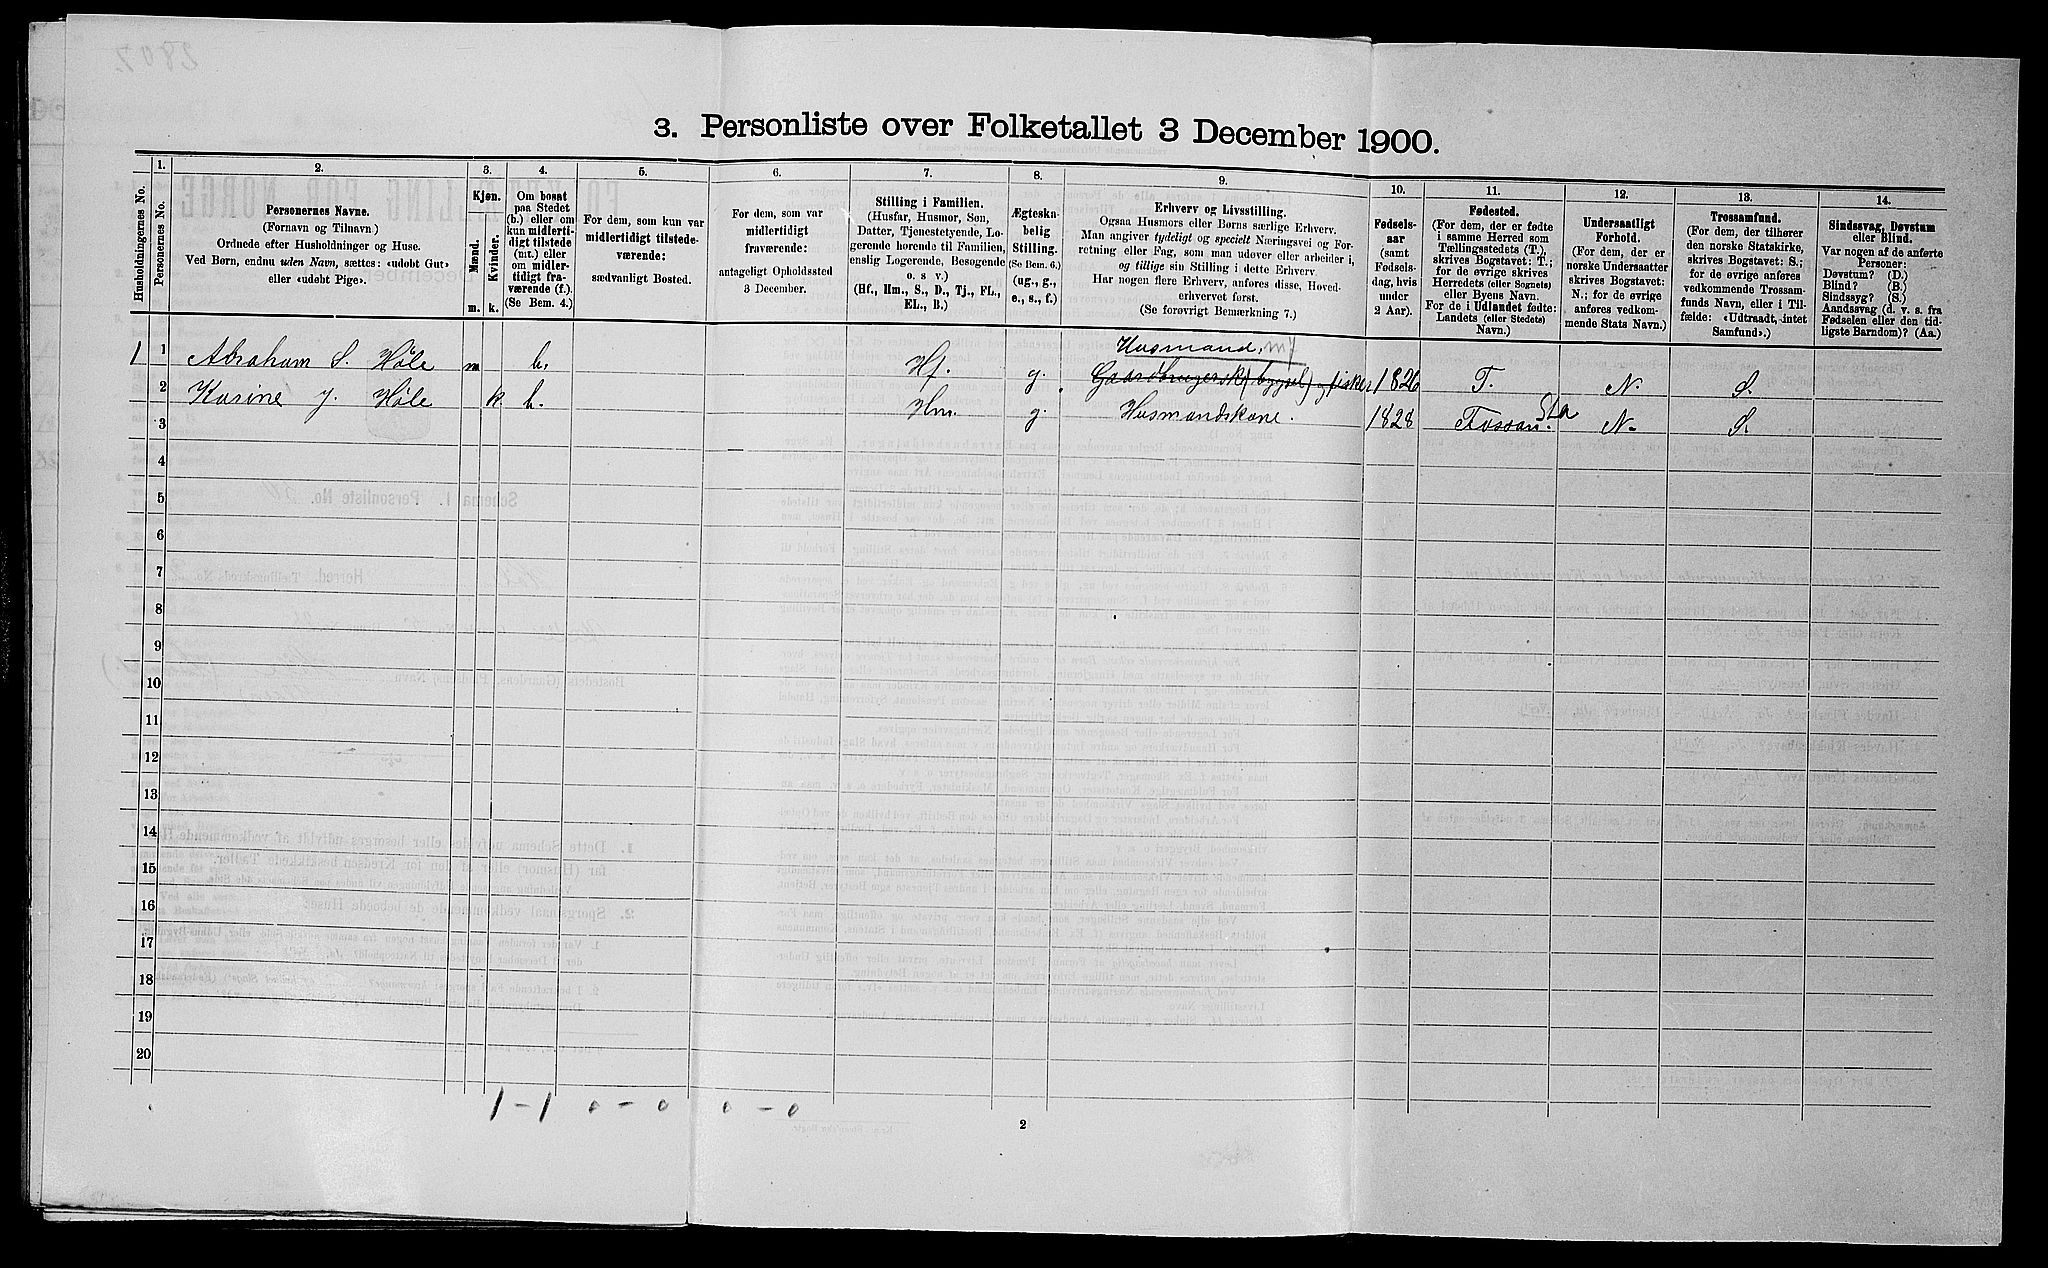 3. Personliste over Folketallet 3 December 1900.
1. 2. 3. 4. 5. 6. 7. 8. 9. 10. 11. 12. 13. 14.
Husholdningernes No.
Personernes No.
Personernes Navne.
(Fornavn og Tilnavn.)
Ordnede efter Husholdninger og Huse.
Ved Børn, endnu uden Navn, sættes: «udøbt Gut»
eller «udøbt Pige».
Kjøn.
Mænd.
Kvinder.
m. k.
Om bosat
paa Stedet
(b.) eller om
kun midlerti-
digt tilstede
(mt.) eller
om midler-
tidigt fra-
værende (f.).
(Se Bem. 4.)
For dem, som kun var
midlertidigt tilstede-
værende:
sædvanligt Bosted.
For dem, som var
midlertidigt
fraværende:
antageligt Opholdssted
3 December.
Stilling i Familien.
(Husfar, Husmor, Søn,
Datter, Tjenestetyende, Lo-
gerende hørende til Familien,
enslig Logerende, Besøgende
o. s v.)
(Hf., Hm., S., D., Tj., FL.,
EL., B.)
Ægteska-
belig
Stilling.
(Se Bem. 6.)
(ug., g.,
e., s., f.)
Erhverv og Livsstilling.
Ogsaa Husmors eller Børns særlige Erhverv.
Man angiver tydeligt og specielt Næringsvei og For-
retning eller Fag, som man udøver eller arbeider i,
og tillige sin Stilling i dette Erhverv.
Har nogen flere Erhverv, anføres disse, Hoved-
erhvervet først.
(Se forøvrigt Bemærkning 7.)
Fødsels-
aar
(samt
Fødsels-
dag, hvis
under
2 Aar).
Fødested.
(For dem, der er fødte
i samme Herred som
Tællingsstedets (T.),
skrives Bogstavet: T.;
for de øvrige skrives
Herredets (eller Sognets)
eller Byens Navn.
For de i Udlandet fødte:
Landets (eller Stedets)
Navn.)
Undersaatligt
Forhold.
(For dem, der er
norske Undersaatter
skrives Bogstavet:
N.; for de øvrige
anføres vedkom-
mende Stats Navn.)
Trossamfund.
(For dem, der tilhører
den norske Statskirke,
skrives Bogstavet: S.;
for de øvrige anføres
vedkommende Trossam-
funds Navn, eller i Til-
fælde: «Udtraadt, intet
Samfund».)
Sindssvag, Døvstum
eller Blind.
Var nogen af de anførte
Personer:
Døvstum? (D.)
Blind? (B.)
Sindssyg? (S.)
Aandssvag (d. v. s. fra
Fødselen eller den tid-
ligste Barndom)? (Aa.)
Husmand, m f
1 1 Abraham S. Høle m b. Hf. g. Gaardbruger sk (bygsel) og fisker 1826 T. N S.
2 Karine J. Høle k b. Hm. g. Husmandskone. 1828 Fossan. Sta N. S.
3
4
5
6
7
8
9
10
11
12
13
14
15
16
17
18
19
20
1 - 1 0 - 0 0 - 0
2